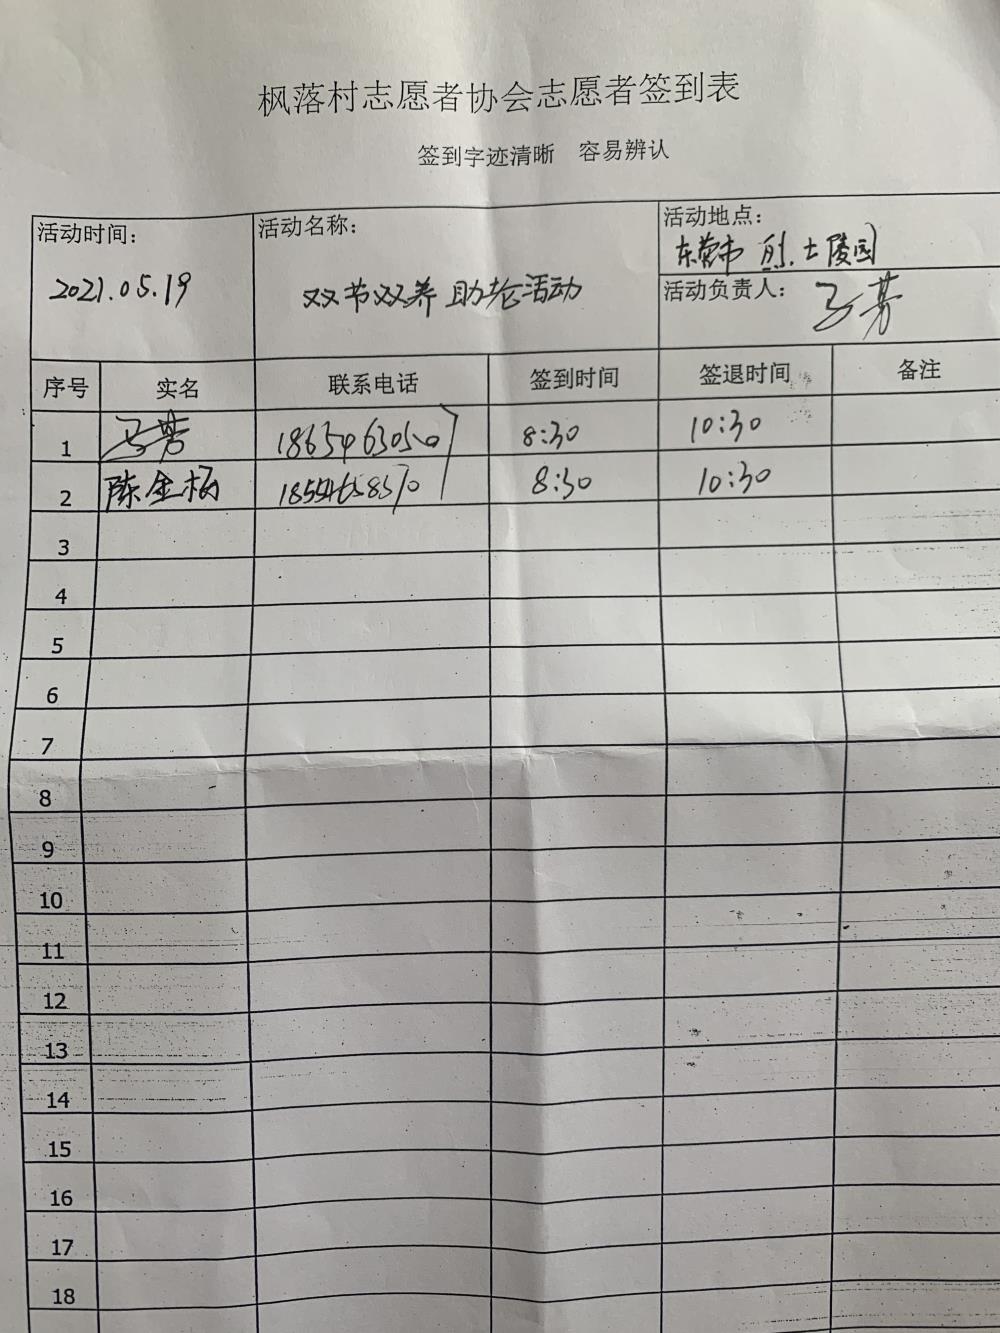 枫落村志愿者协会志愿者签到表
签到字迹清晰 容易辨认
活动时间:
2021.05.19
活动名称:
双节双养 助老活动
活动地点:
东营市 烈士陵园
活动负责人:
马芳
序号 实名 联系电话 签到时间 签退时间 备注
1 马芳 8:30 10:30
2 陈金 8:30 10:30
3
4
5
6
7
8
9
10
11
12
13
14
15
16
17
18